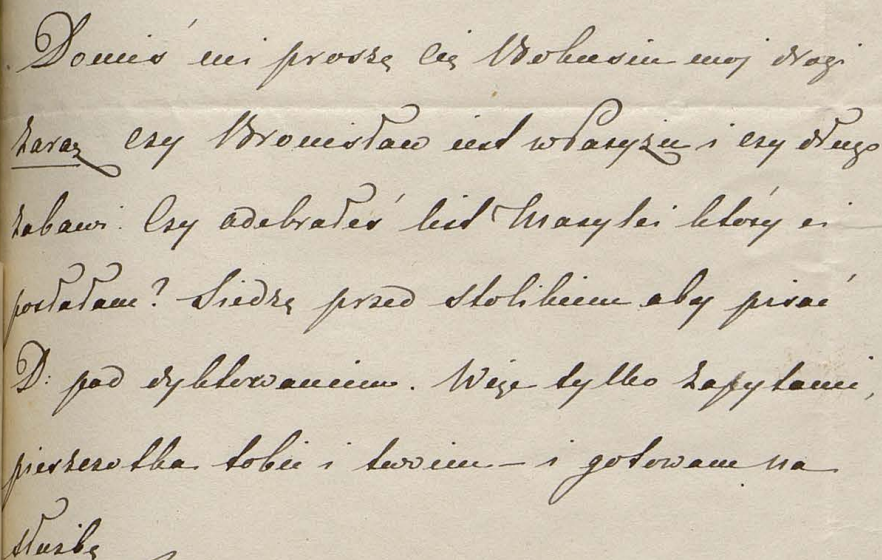 Donieś mi proszę Cię Bobusiu moj drogi
zaraz Czy Bronisław iest w Paryżu i czy długo
zabawi. Czy odebrałeś list Marylei który ci
posłałam? Siedzę przed stolikiem aby pisać
D: pod dyktowaniem. Więc tylko zapytani,
pieszczotka tobie i twoim – i gotowam na
służbę